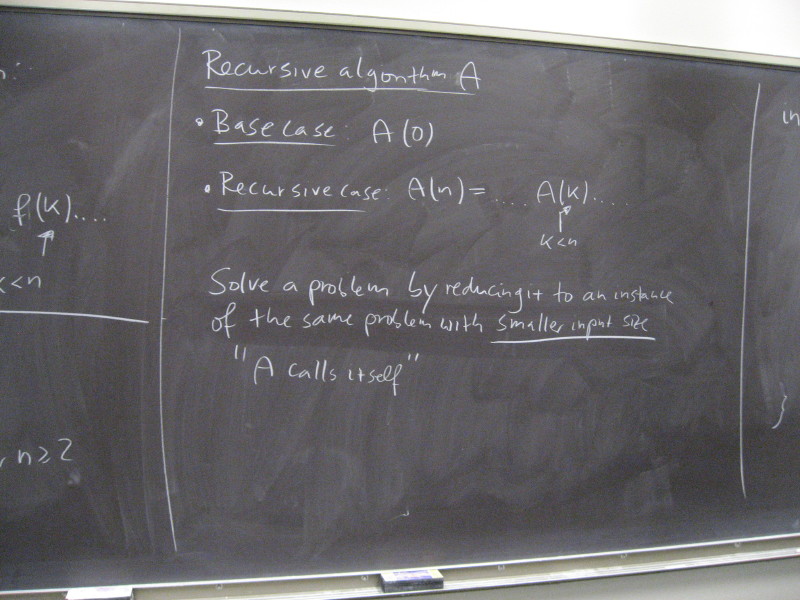 n:
f(k)....
k<n
, n≥2
Recursive algorithm A
• Base case: A(0)
• Recursive case: A(n) = .... A(k).....
k<n
Solve a problem by reducing it to an instance
of the same problem with smaller input size
"A calls itself"
in
}